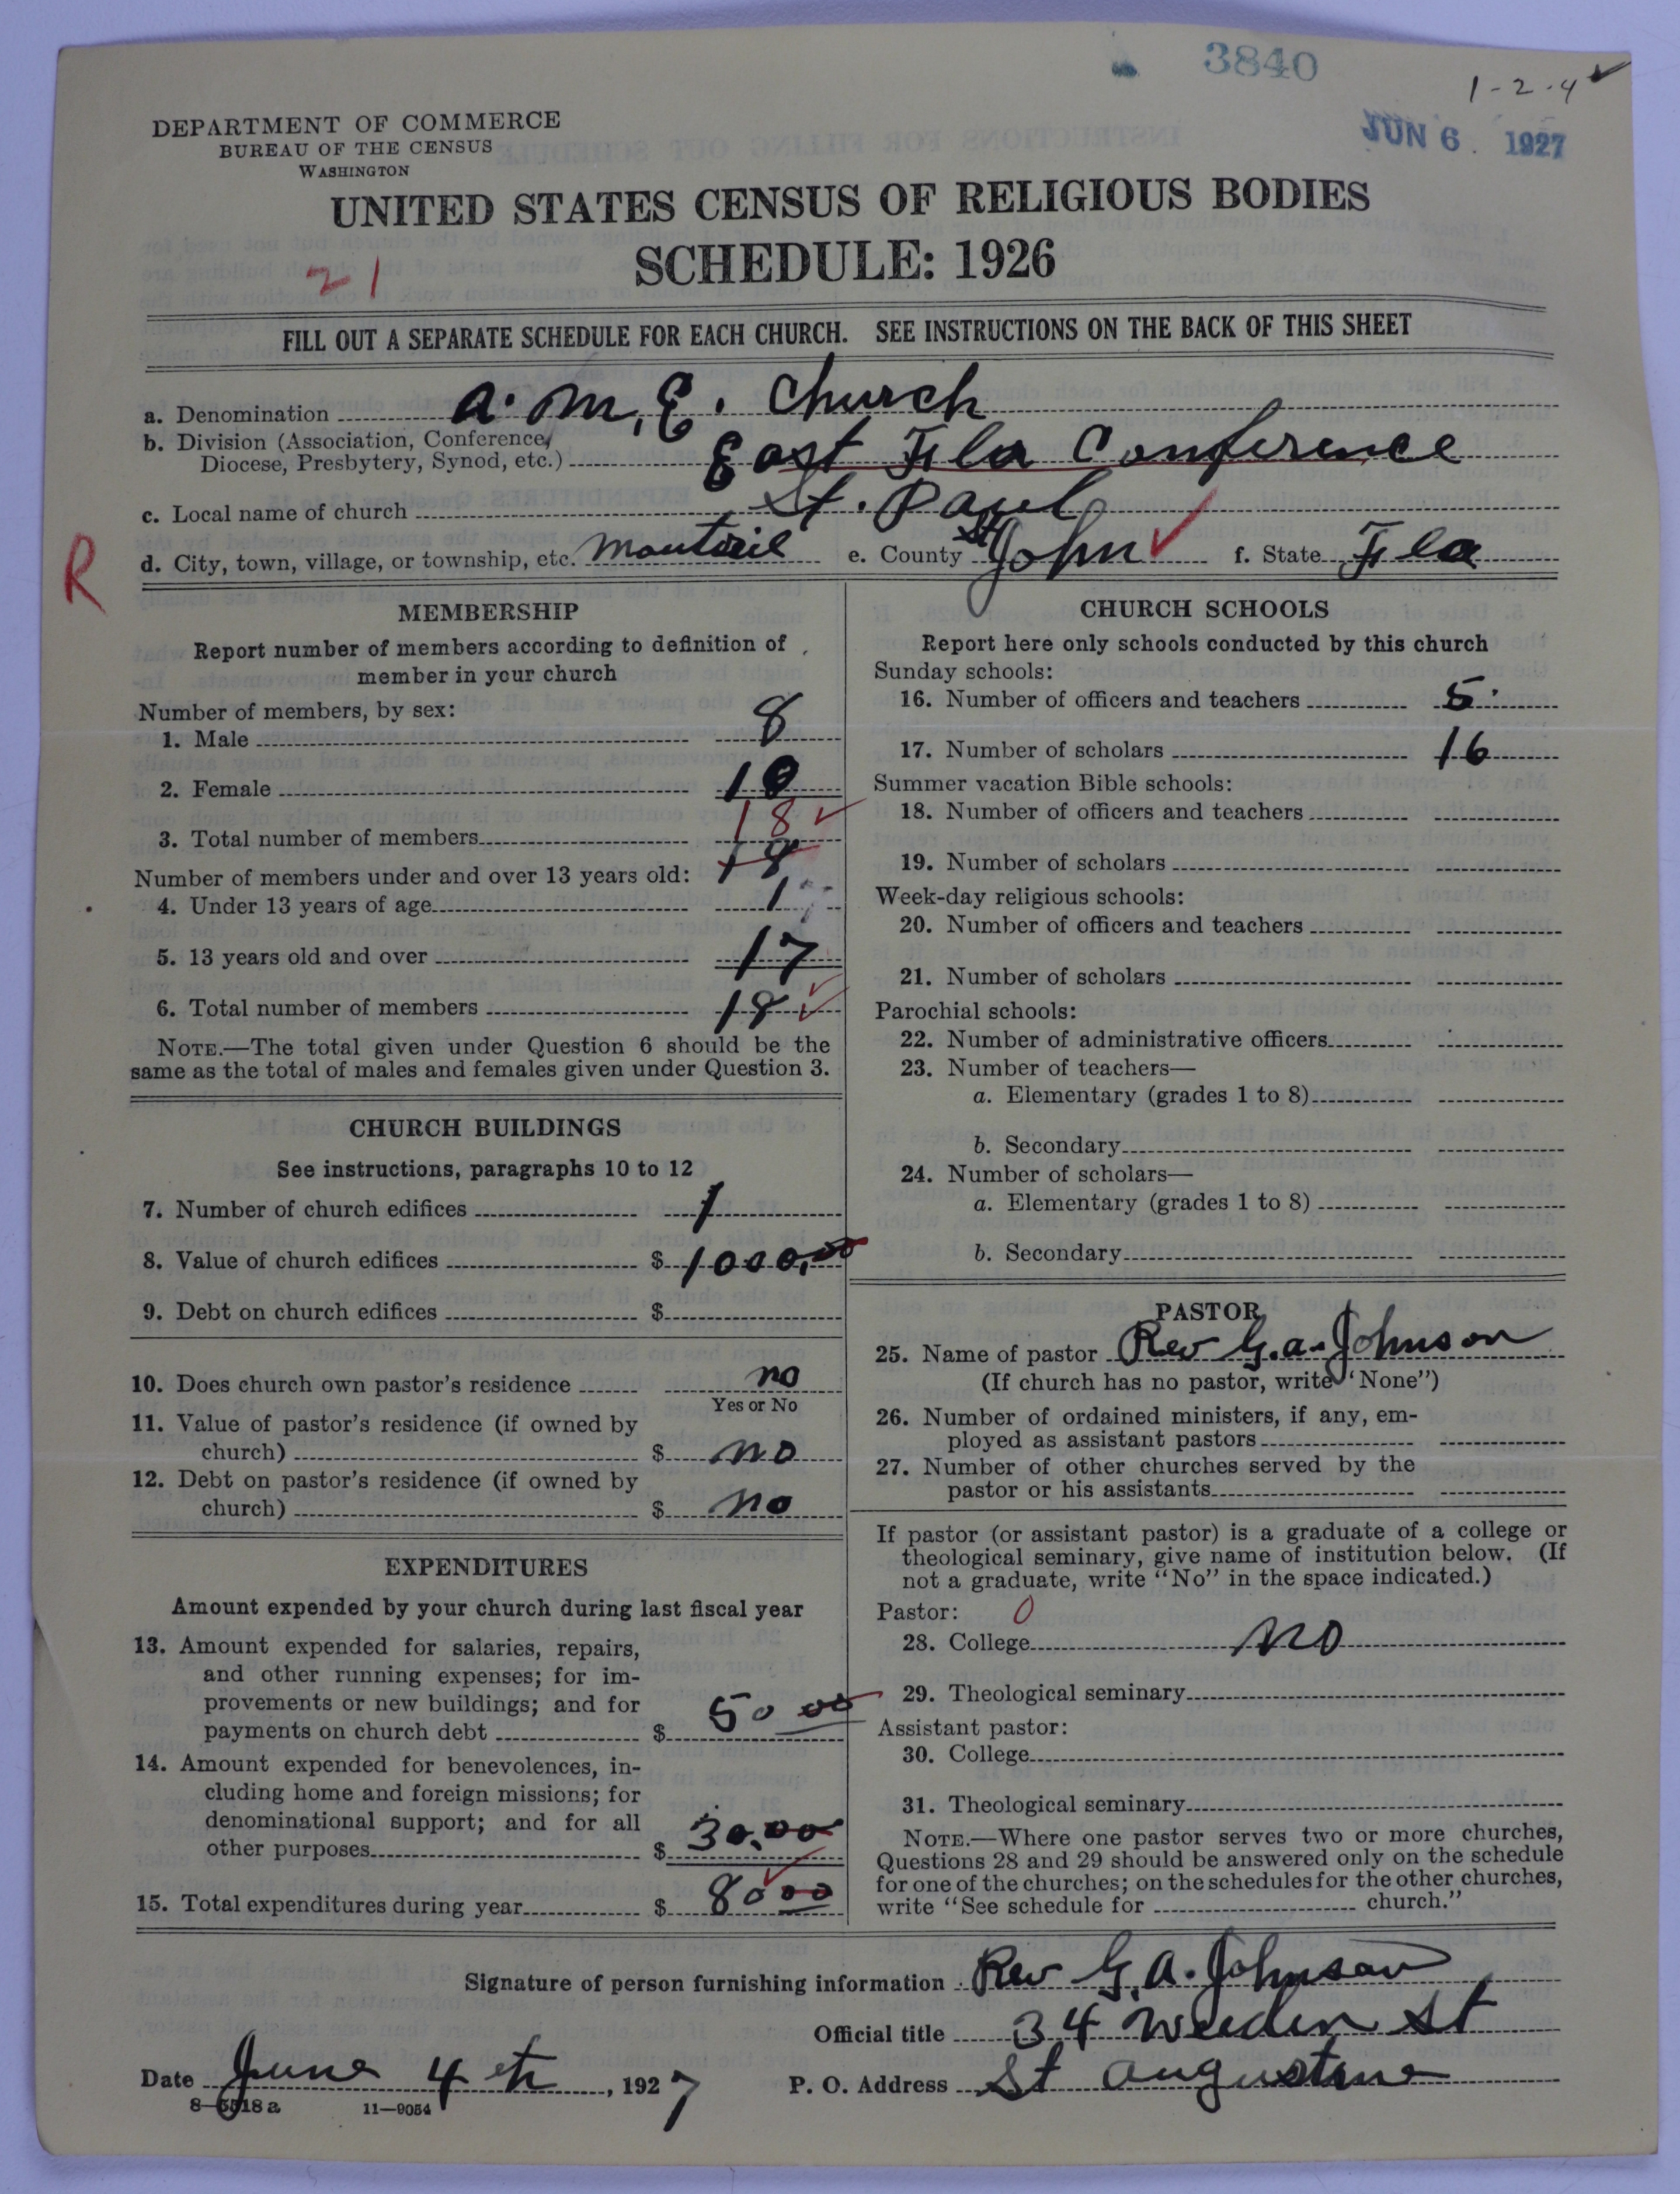 3840
1-2-4
JUN 6 1927
DEPARTMENT OF COMMERCE
BUREAU OF THE CENSUS
WASHINGTON
UNITED STATES CENSUS OF RELIGIOUS BODIES
SCHEDULE: 1926
21
FILL OUT A SEPARATE SCHEDULE FOR EACH CHURCH. SEE INSTRUCTIONS ON THE BACK OF THIS SHEET
a. Denomination A. M. E. Church
b. Division (Association, Conference,
Diocese, Presbytery, Synod, etc.) East Fla Conference
c. Local name of church St. Paul
R
d. City, town, village, or township, etc. e. County St John f. State Fla
MEMBERSHIP
Report number of members according to definition of
member in your church
Number of members, by sex:
1. Male 8
2. Female 10
18
3. Total number of members 18
Number of members under and over 13 years old:
4. Under 13 years of age 1
5. 13 years old and over 17
6. Total number of members 18
NOTE.—The total given under Question 6 should be the
same as the total of males and females given under Question 3.
CHURCH BUILDINGS
See instructions, paragraphs 10 to 12
7. Number of church edifices 1
8. Value of church edifices $ 1000.00
9. Debt on church edifices $
10. Does church own pastor's residence no
Yes or No
11. Value of pastor's residence (if owned by
church) $ no
12. Debt on pastor's residence (if owned by
church) $ no
EXPENDITURES
Amount expended by your church during last fiscal year
13. Amount expended for salaries, repairs,
and other running expenses; for im-
provements or new buildings; and for
payments on church debt $ 50 00
14. Amount expended for benevolences, in-
cluding home and foreign missions; for
denominational support; and for all
other purposes $ 30.00
15. Total expenditures during year $ 80 00
CHURCH SCHOOLS
Report here only schools conducted by this church
Sunday schools:
16. Number of officers and teachers 5
17. Number of scholars 16
Summer vacation Bible schools:
18. Number of officers and teachers
19. Number of scholars
Week-day religious schools:
20. Number of officers and teachers
21. Number of scholars
Parochial schools:
22. Number of administrative officers
23. Number of teachers—
a. Elementary (grades 1 to 8)
b. Secondary
24. Number of scholars—
a. Elementary (grades 1 to 8)
b. Secondary
PASTOR
25. Name of pastor Rev G. A. Johnson
(If church has no pastor, write "None")
26. Number of ordained ministers, if any, em-
ployed as assistant pastors
27. Number of other churches served by the
pastor or his assistants
If pastor (or assistant pastor) is a graduate of a college or
theological seminary, give name of institution below. (If
not a graduate, write "No" in the space indicated.)
Pastor: 0
28. College no
29. Theological seminary
Assistant pastor:
30. College
31. Theological seminary
NOTE.—Where one pastor serves two or more churches,
Questions 28 and 29 should be answered only on the schedule
for one of the churches; on the schedules for the other churches,
write "See schedule for church."
Signature of person furnishing information Rev G. A. Johnson
Official title 34 Weeden St
Date June 4th, 1927 P. O. Address St Augustine
8—5518 a 11—9054